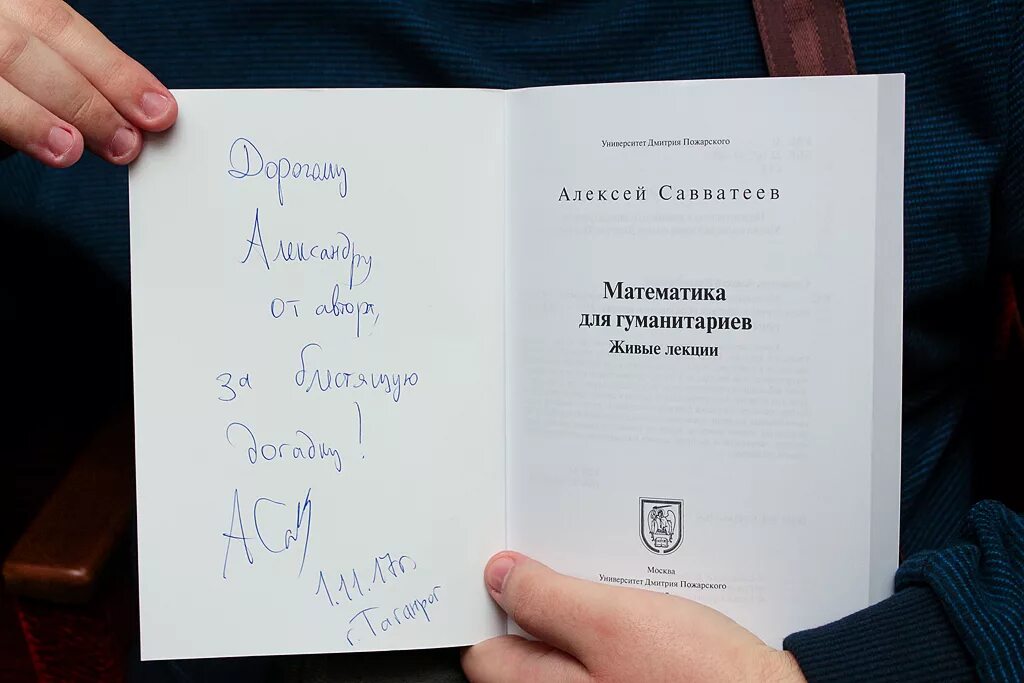 Дорогому
Александру
от автора,
за блестящую
догадку!
АСав
1.11.17г.
г. Таганрог
Университет Дмитрия Пожарского
Алексей Савватеев
Математика
для гуманитариев
Живые лекции
Москва
Университет Дмитрия Пожарского